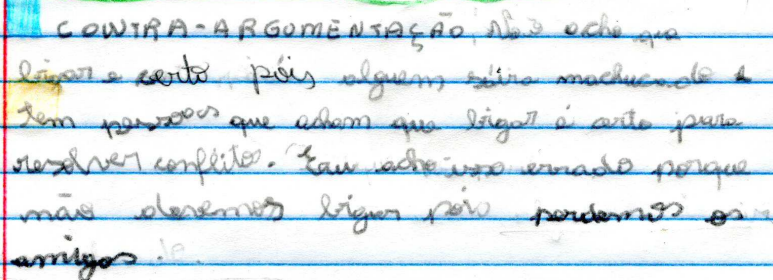 CONTRA-ARGUMENTAÇÃO Não acho que
brigar e certo pois alguem saira machucado e
tem pessoas que acham que brigar é certo para
resolver conflitos. Eau acho isso errado porque
não devemos brigar pois perdemos os
amigos.